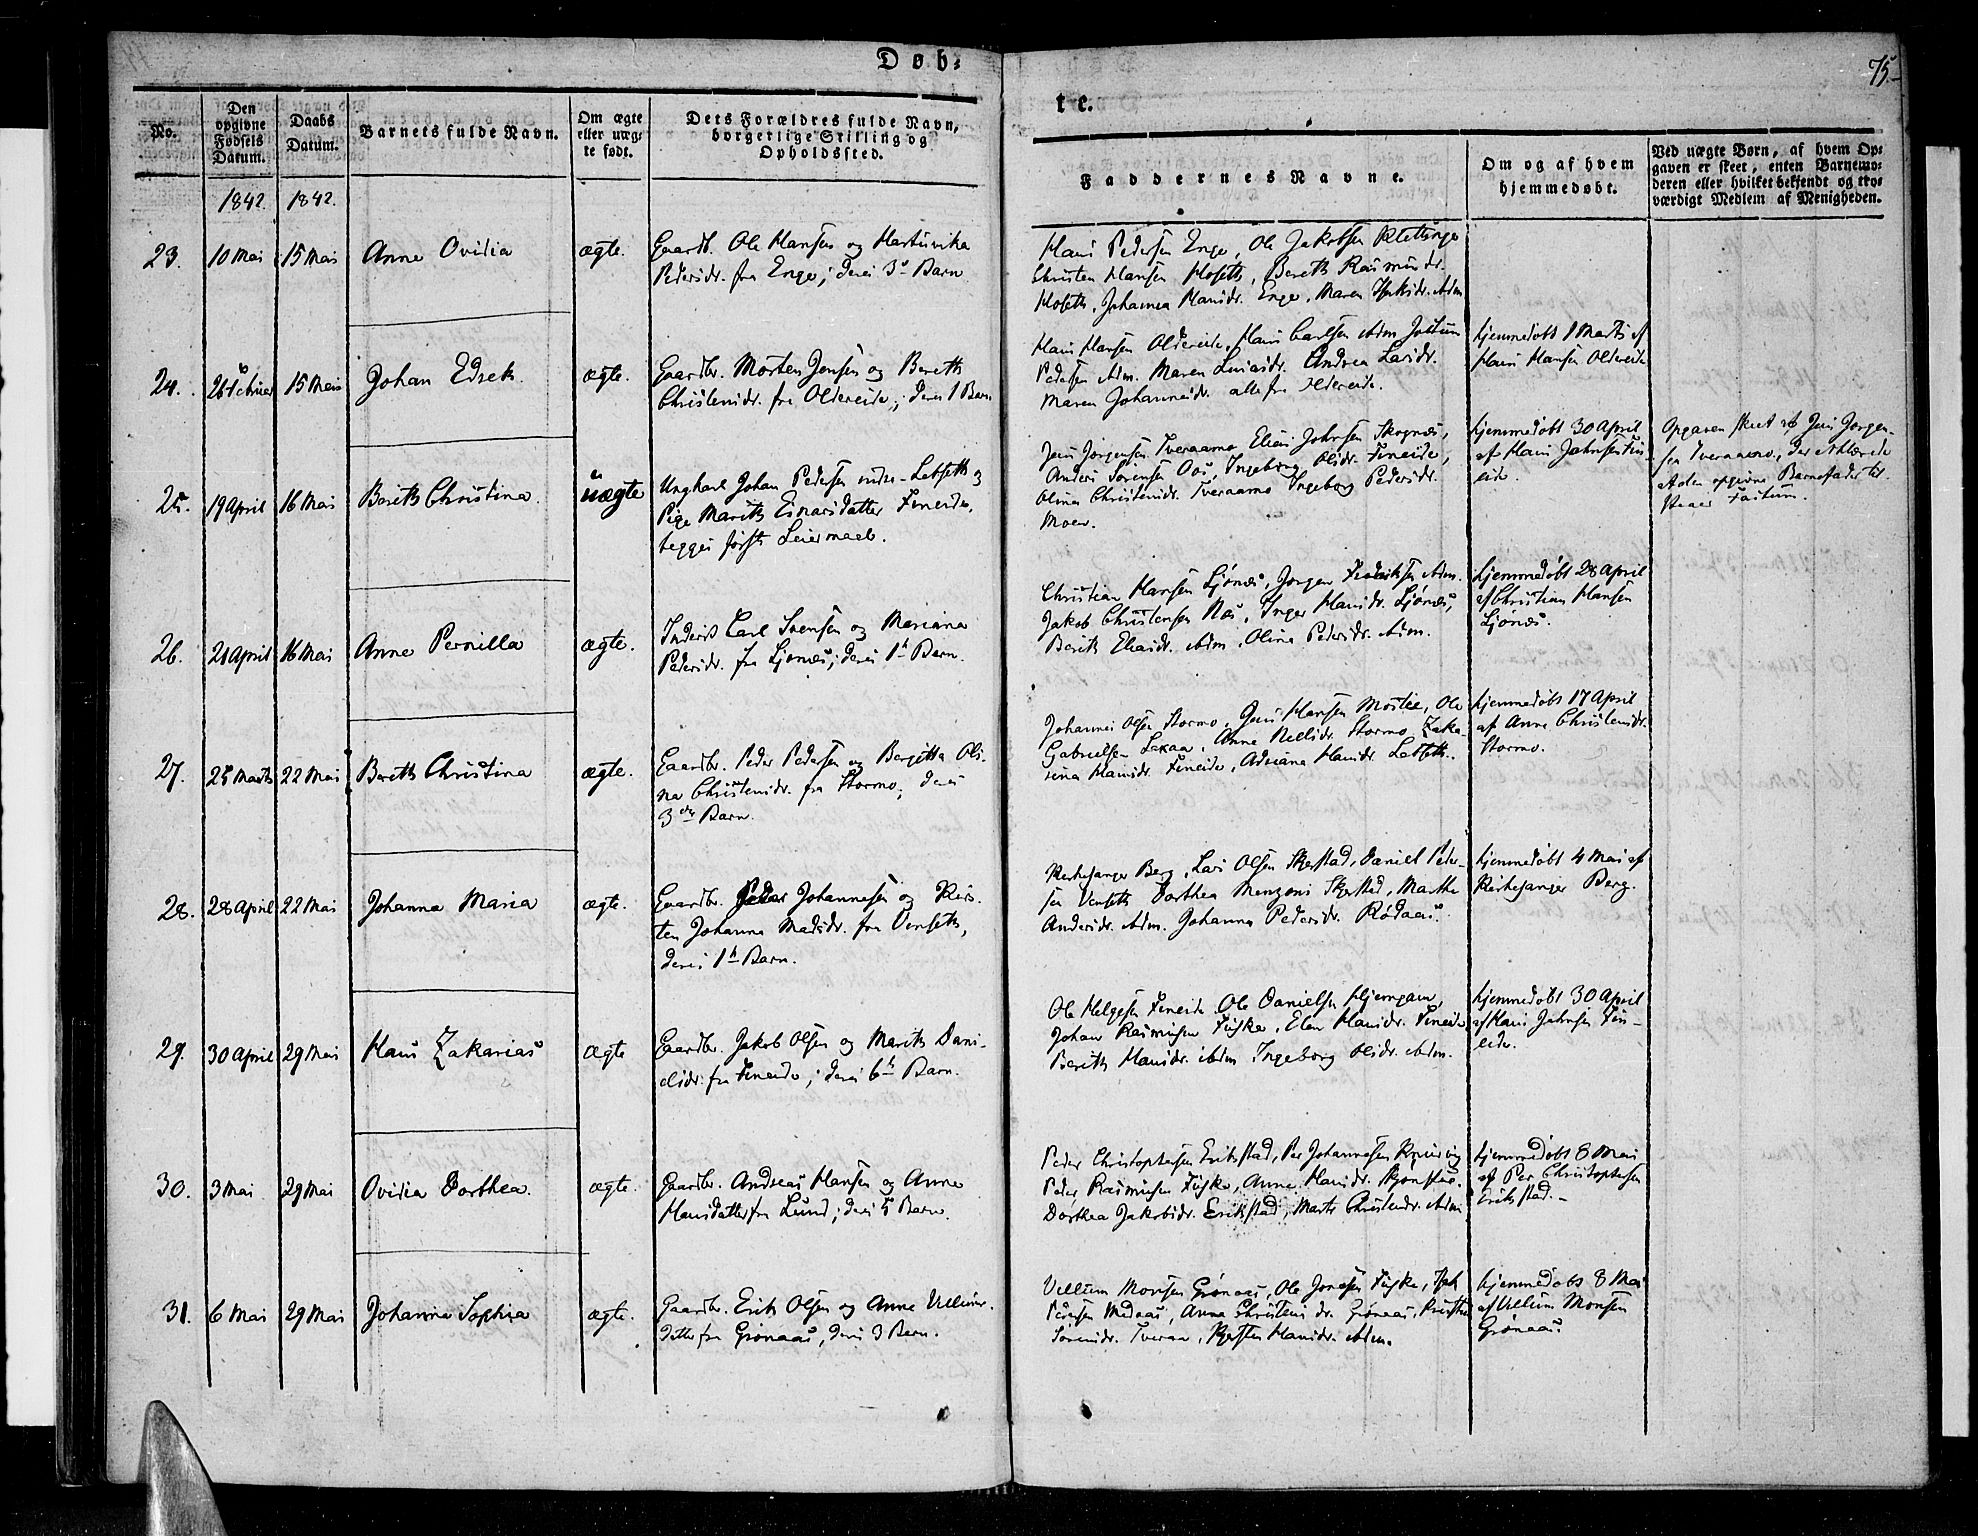 Døb-
te.
75.
No.
Den opgivne Fødsels Datum.
Daabs Datum.
Barnets fulde Navn.
Om ægte eller uægte født.
Dets Forældres fulde Navn, borgerlige Stilling og Opholdssted.
Faddernes Navne.
Om og af hvem hjemmedøbt.
Ved uægte Børn, af hvem Opgaven er skeet, enten Barnemoderen eller hvilket bekjendt og troværdigt Medlem af Menigheden.
1842. 1842.
23. 10 Mai 15 Mai Anne Ovidia ægte.
Gaardb. Ole Hansen og
Pedersdr. fra Enge; deres 3 Barn
Hans Pedersen Enge, Ole Jakobsen
Christen Hansen Hoseth, Berith Rasmusdr.
Hoseth, Johanna Hansdr. Enge, Maren
24. 15 Mai Johan ægte.
Gaardbr. Morten Jensen og Berith
Christensdr. fra Oldereide; deres 1 Barn
Hans Hansen Oldereide, Hans Carlsen
Pedersen Maren Andrea Larsdr.
Maren Johannesdr. alle fra Oldereide.
hjemmedøbt 1 Marts af
Hans Hansen Oldereide
25. 19 April 16 Mai Berith Christina. uægte
Ungkarl Johan Pedersen og
Pige Marith Einarsdatter Fineide,
begges første Leiermaal.
Jens Jørgensen Tveraamo Elias Johnsen
Anders Sørensen Ingeborg Olsdr. Fineide,
Olina Christensdr. Tveraamo Ingeborg Pedersdr.
Moen.
hjemmedøbt 30 April
af Hans Johnsen Fin-
eide.
Opgaven skeet af Jens Jørgen-
sen Tveraamo, der
opgivne Barnefader
Factum.
26. 21 April 16 Mai Anne Pernilla ægte.
Inderst Carl Svensen og Mariana
Pedersdr. fra Ljønes; deres 1 Barn.
Christian Hansen Ljønes, Jørgen
Jakob Christensen Næs, Inger Hansdr. Ljønes,
Berith Eliasdr. Olina Pedersdr.
hjemmedøbt 28 April
af Christian Hansen
Ljønes.
27. 25 Marts 22 Mai Berith Christina ægte.
Gaardbr. Peder Pedersen og Bergitta Oli-
na Christensdr. fra Stormo, deres
3 Barn.
Johannes Olsen Stormo, Jens Hansen Ole
Gabrielsen Anne Nellsdr. Stormo, Zaka-
rina Hansdr. Fineide, Adriana Hansdr.
hjemmedøbt 17 April
af Anne Christensdr.
Stormo.
28. 28 April 22 Mai Johanna Maria ægte.
Gaardbr. Peder Johannesen og Kirs-
ten Johanna Madsdr. fra Venseth,
deres 1 Barn.
Kirkesanger Berg, Lars Olsen Skjerstad, Daniel Peder-
sen Venseth Dorthea Menzoni Skjerstad, Marthe
Andersdr. Johanna Pedersdr. Rødaas.
hjemmedøbt 4 Mai af
Kirkesanger Berg.
29. 30 April 29 Mai Hans Zakarias ægte
Gaardbr. Jakob Olsen og Marith Dani-
elsdr. fra Fineide; deres 6 Barn.
Ole Helgesen Fineide Ole Danielsen Hjemgam,
Johan Rasmusen Fuske, Elen Hansdr. Fineide
Berith Hansdr. Ingeborg Olsdr.
hjemmedøbt 30 April
af Hans Johnsen Fin-
eide.
30. 3 Mai 29 Mai Ovidia Dorthea. ægte.
Gaardbr. Andreas Hansen og Anne
Hansdatter fra Lund; deres 5 Barn.
Peder Christophersen Erikstad, Per Johannesen
Peder Rasmusen Fuske, Anne Hansdr.
Dorthea Jakobsdr. Erikstad, Marte
hjemmedøbt 8 Mai
af Per Christophersen
Erikstad.
31. 6 Mai 29 Mai Johanna Sophia ægte.
Gaardbr. Erik Olsen og Anne Vellums-
datter fra Grønaas, deres 3 Barn.
Vellum Monsen Grønaas, Ole Jonasen Fuske,
Medaas, Anne Christensdr. Grønaas,
Sørensdr. Tveraa, Kjersten Hansdr.
hjemmedøbt 8 Mai
af Vellum Monsen
Grønaas.